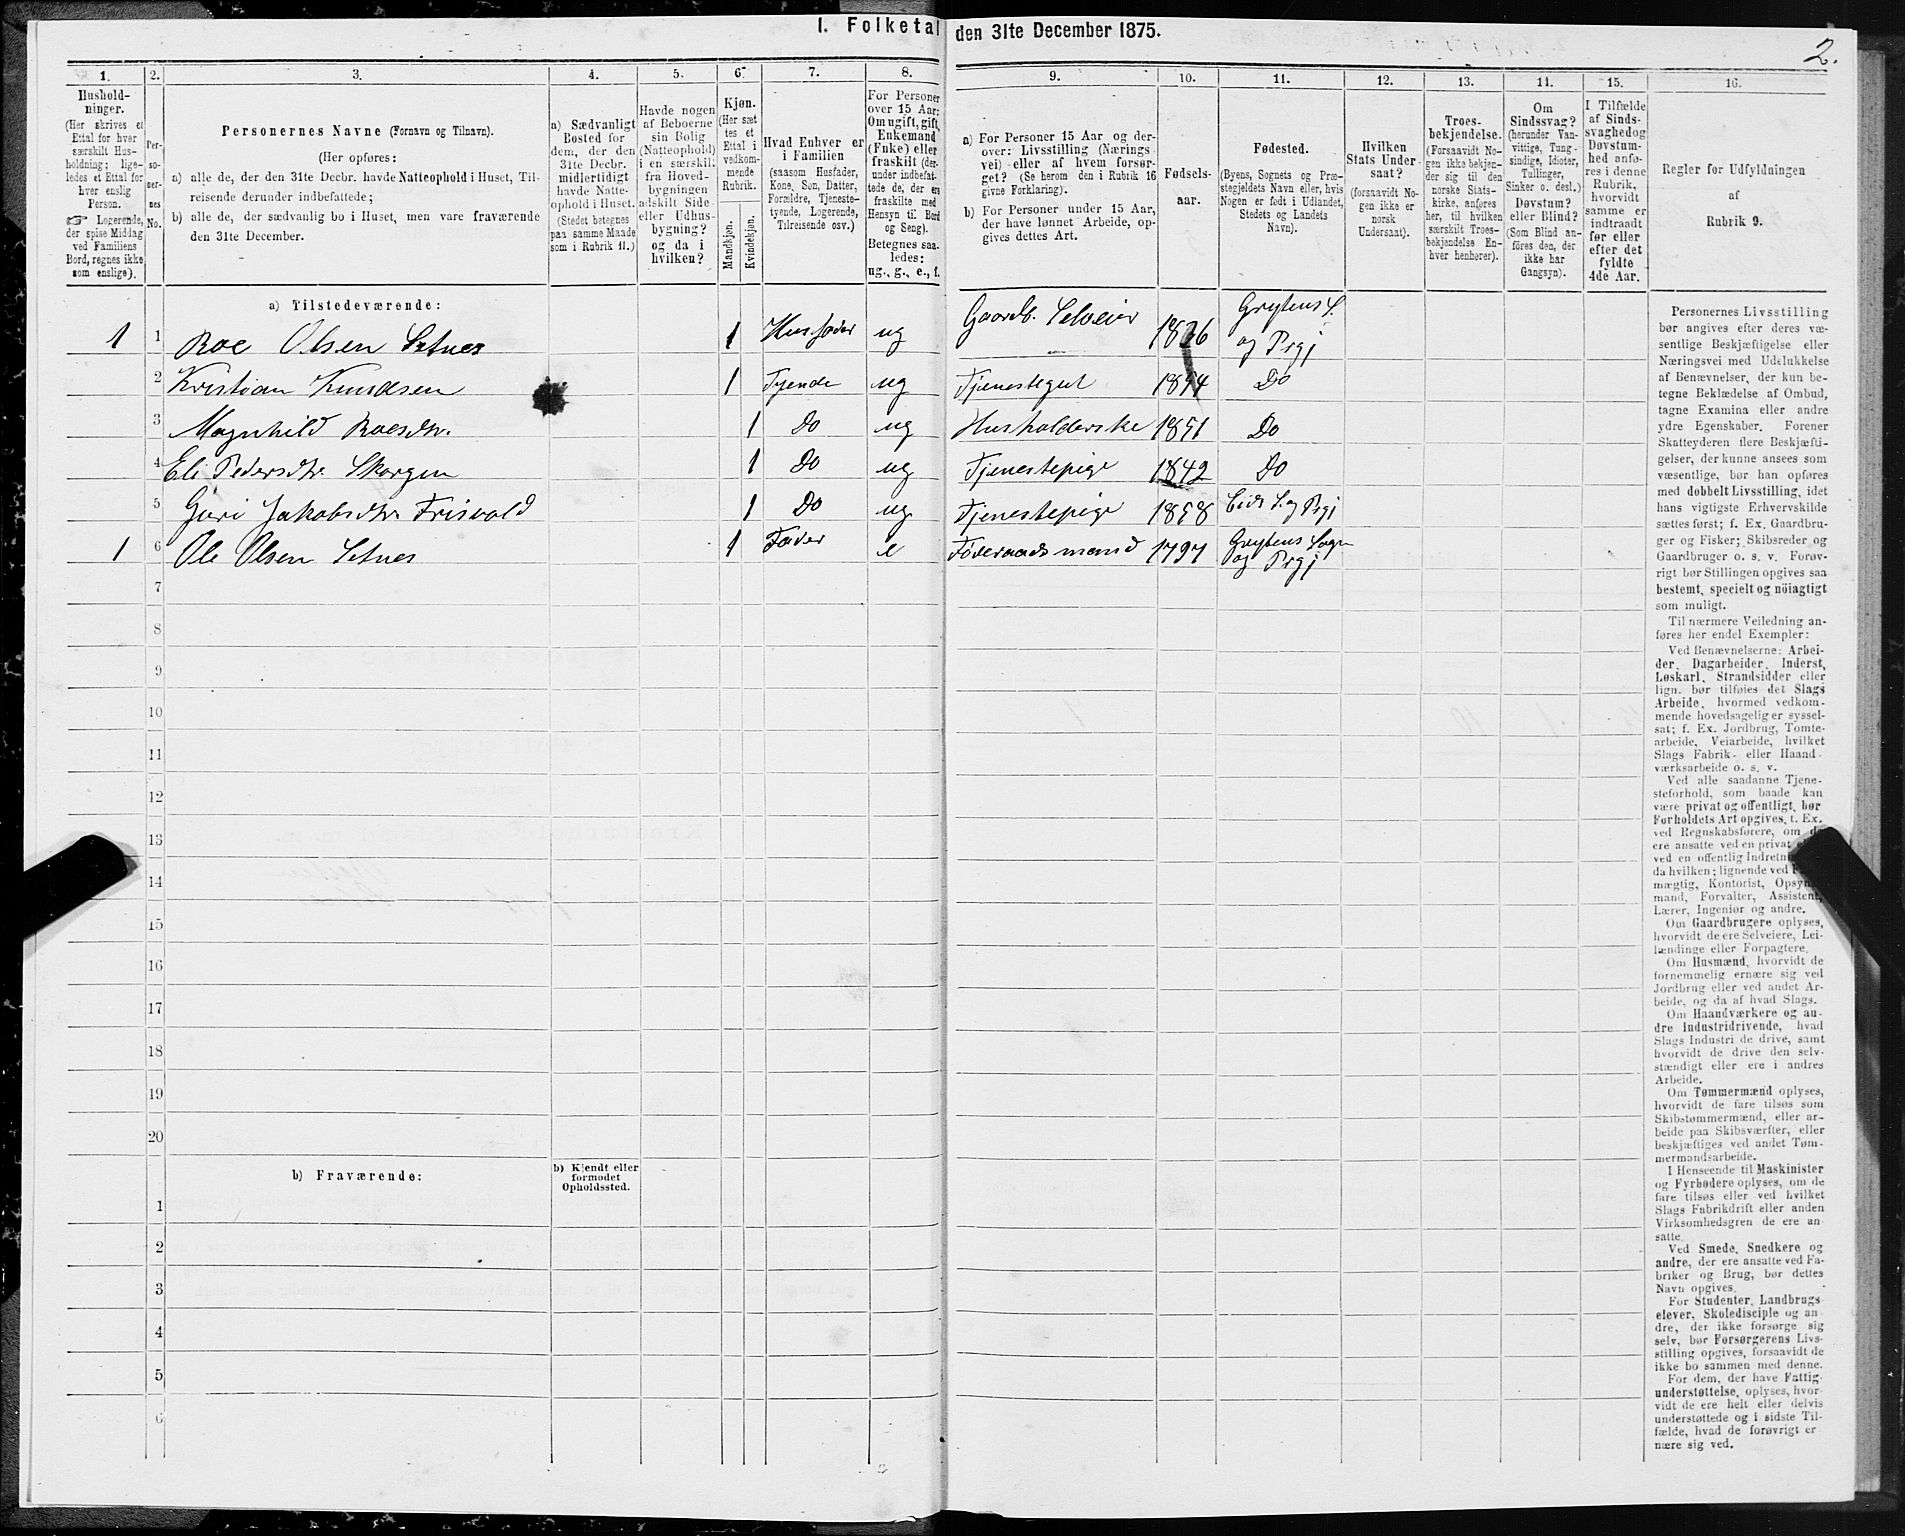 I. Folketal den 31te December 1875.
2.
1.
Hushold-
ninger.
(Her skrives et
Ettal for hver
særskilt Hus-
holdning; lige-
ledes et Ettal for
hver enslig
Person.
☞ Logerende,
der spise Middag
ved Familiens
Bord, regnes ikke
som enslige).
2.
Per-
so-
ner-
nes
No.
3.
Personernes Navne (Fornavn og Tilnavn).
(Her opføres:
a) alle de, der den 31te Decbr. havde Natteophold i Huset, Til-
reisende derunder indbefattede;
b) alle de, der sædvanlig bo i Huset, men vare fraværende
den 31te December.
4.
a) Sædvanligt
Bosted for
dem, der den
31te Decbr.
midlertidigt
havde Natte-
ophold i Huset.
(Stedet betegnes
paa samme Maade
som i Rubrik 11.)
5.
Havde nogen
af Beboerne
sin Bolig
(Natteophold)
i en særskilt
fra Hoved-
bygningen
adskilt Side-
eller Udhus-
bygning?
og da i
hvilken?
6.
Kjøn.
(Her sæt
tes et
Ettal i
vedkom-
mende
Rubrik.
Mandkjøn.
Kvindekjøn.
7.
Hvad Enhver er
i Familien
(saasom Husfader,
Kone, Søn, Datter,
Forældre, Tjeneste-
tyende, Logerende,
Tilreisende osv.)
8.
For Personer
over 15 Aar:
Om ugift, gift,
Enkemand
(Enke) eller
fraskilt (der-
under indbefat-
tede de, der ere
fraskilte med
Hensyn til Bord
og Seng).
Betegnes saa-
ledes:
ug., g., e., f.
9.
a) For Personer 15 Aar og der-
over: Livsstilling (Nærings-
vei) eller af hvem forsør-
get? (Se herom den i Rubrik 16
givne Forklaring).
b) For Personer under 15 Aar,
der have lønnet Arbeide, op-
gives dettes Art.
10.
Fødsels-
aar.
11.
Fødested.
(Byens, Sognets og Præ-
stegjeldets Navn eller, hvis
Nogen er født i Udlandet,
Stedets og Landets
Navn).
12.
Hvilken
Stats Under-
saat?
(forsaavidt No-
gen ikke er
norsk
Undersaat).
13.
Troes-
bekjendelse.
(Forsaavidt No-
gen ikke bekjen-
der sig til den
norske Stats-
kirke, anføres
her, til hvilken
særskilt Troes-
bekjendelse En-
hver henhører).
14.
Om
Sindssvag?
(herunder Van-
vittige, Tung-
sindige, Idioter,
Tullinger,
Sinker o. desl.)
Døvstum?
eller Blind?
(Som Blind an-
føres den, der
ikke har
Gangsyn).
15.
I Tilfælde
af Sinds-
svaghed og
Døvstum-
hed anfø-
res i denne
Rubrik,
hvorvidt
samme er
indtraadt
før eller
efter det
fyldte
4de Aar.
16.
Regler for Udfyldningen
af
Rubrik 9.
a) Tilstedeværende:
1 1 Roe Olsen Setnes 1 Husfader ug Gaardb. Selveier 1836 Grytens S. og Prgj
2 Kristian Knudsen 1 Tyende ug Tjenestegut 1854 Do
3 Magnhild Roesdtr. 1 Do ug Husholderske 1851 Do
4 Eli Pedersdtr Skorgen 1 Do ug Tjenestepige 1842 Do
5 Guri Jakobsdtr. Frisvold 1 Do ug Tjenestepige 1858 Eids S. og Prgj
1 6 Ole Olsen Setnes 1 Fader e Føderaadsmand 1797 Grytens Sogn og Prgj
7
8
9
10
11
12
13
14
15
16
17
18
19
20
b) Fraværende:
b) Kjendt eller
formodet
Opholdssted.
1
2
3
4
5
6
Personernes Livsstilling
bør angives efter deres væ-
sentlige Beskjæftigelse eller
Næringsvei med Udelukkelse
af Benævnelser, der kun be-
tegne Beklædelse af Ombud,
tagne Examina eller andre
ydre Egenskaber. Forener
Skatteyderen flere Beskjæfti-
gelser, der kunne ansees som
væsentlige, bør han opføres
med dobbelt Livsstilling, idet
hans vigtigste Erhvervskilde
sættes først; f. Ex. Gaardbru-
ger og Fisker; Skibsreder og
Gaardbruger o. s. v. Forøv-
rigt bør Stillingen opgives saa
bestemt, specielt og nöiagtigt
som muligt.
Til nærmere Veiledning an-
føres her endel Exempler:
Ved Benævnelserne: Arbei-
der, Dagarbeider, Inderst,
Løskarl, Strandsidder eller
lign. bør tilføies det Slags
Arbeide, hvormed vedkom-
mende hovedsagelig er syssel-
sat; f. Ex. Jordbrug, Tomte-
arbeide, Veiarbeide, hvilket
Slags Fabrik- eller Haand-
værksarbeide o. s. v.
Ved alle saadanne Tjene-
steforhold, som baade kan
være privat og offentligt, bør
Forholdets Art opgives, t. Ex.
ved Regnskabsførere, om de
ere ansatte ved en privat
ved en offentlig
da hvilken; lignende ved
mægtig, Kontorist,
mand, Forvalter, Assistent,
Lærer, Ingeniør og andre.
Om Gaardbrugere oplyses,
hvorvidt de ere Selveiere, Lei-
lændinge eller Forpagtere.
Om Husmænd, hvorvidt de
fornemmelig ernære sig ved
Jordbrug eller ved andet Ar-
beide, og da af hvad Slags.
Om Haandværkere og an-
dre Industridrivende, hvad
Slags Industri de drive, samt
hvorvidt de drive den selv-
stændigt eller ere i andres
Arbeide.
Om Tømmermænd oplyses,
hvorvidt de fare tilsøs som
Skibstømmermænd, eller ar-
beide paa Skibsværfter, eller
beskjæftiges ved andet Tøm-
mermandsarbeide.
I Henseende til Maskinister
og Fyrbødere oplyses, om de
fare tilsøs eller ved hvilket
Slags Fabrikdrift eller anden
Virksomhedsgren de ere an-
satte.
Ved Smede, Snedkere og
andre, der ere ansatte ved Fa-
briker og Brug, bør dettes
Navn opgives.
For Studenter, Landbrugs-
elever, Skoledisciple og an-
dre, der ikke forsørge sig
selv, bør Forsørgerens Livs-
stilling opgives, forsaavidt de
ikke bo sammen med denne.
For dem, der have Fattig-
understøttelse, oplyses, hvor-
vidt de ere helt eller delvis
understøttede og i sidste Til-
fælde, hvad de forøvrigt er
nære sig ved.